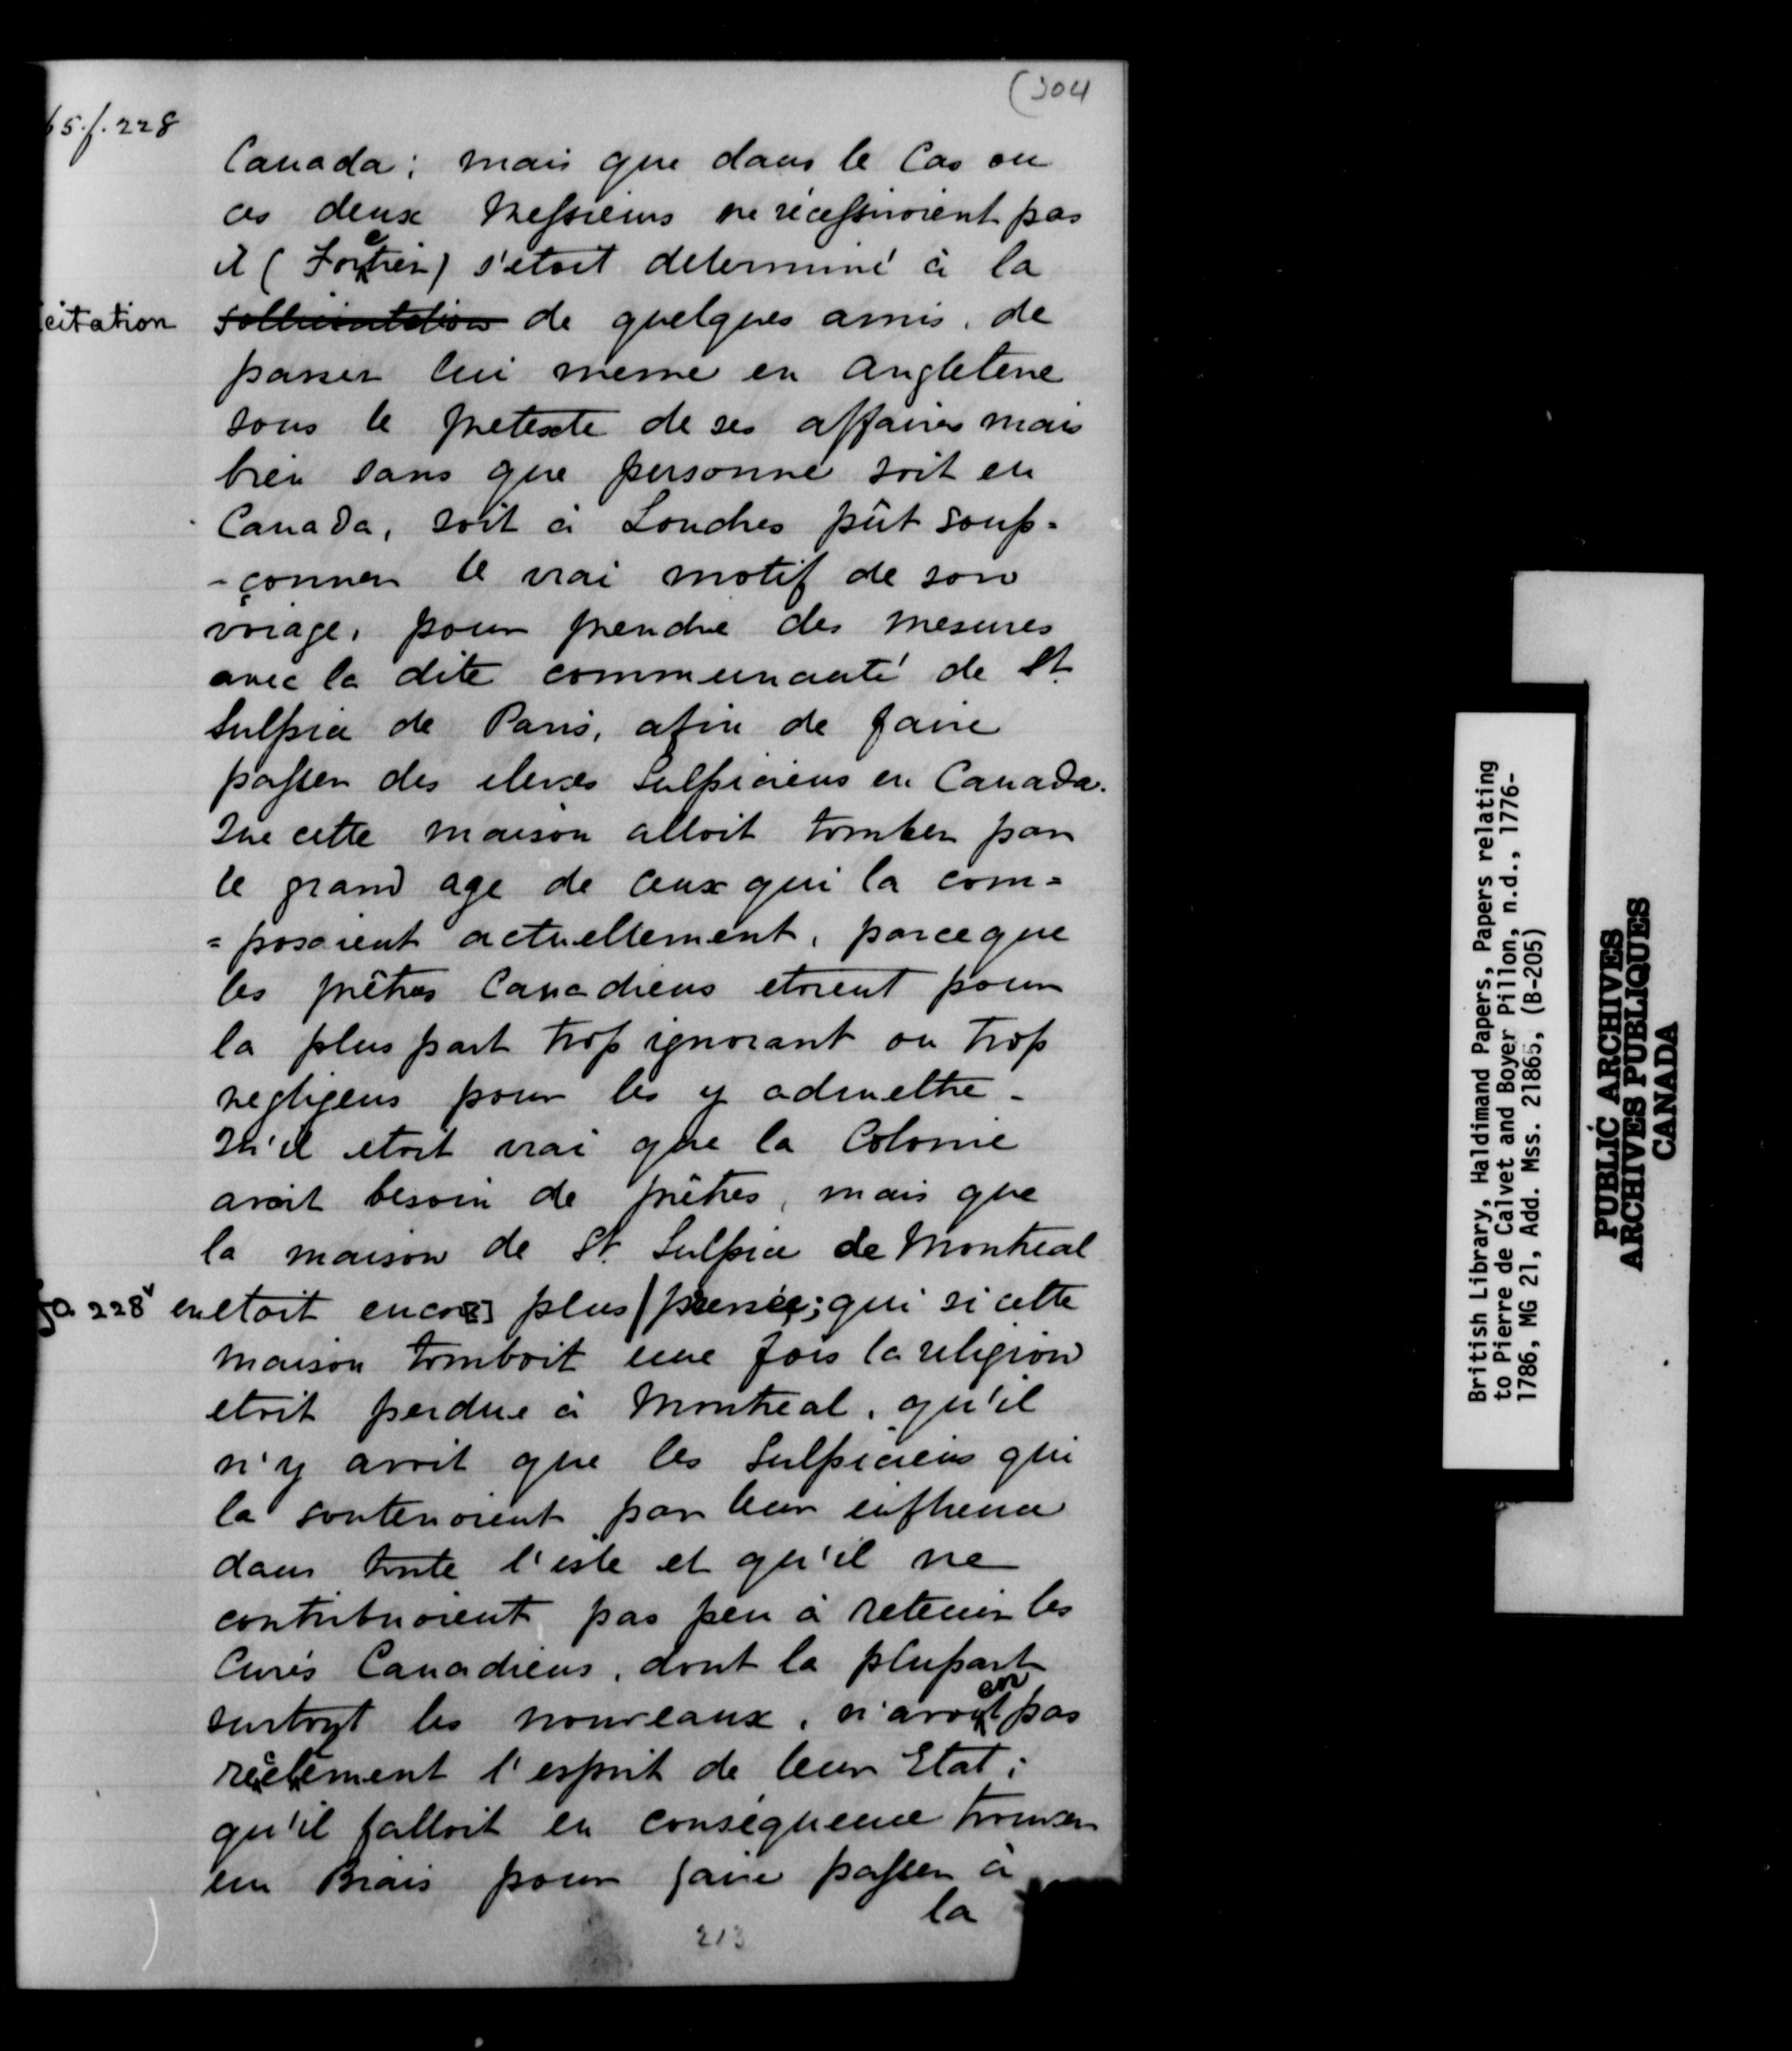 (304
65.f.228
Canada; mais que dans le Cas ou
ces deux Messieurs ne réussiroient pas
il (Fortier) s'etoit determiné à la
citation sollicintation de quelques amis, de
passer lui meme en Angleterre
sous le pretexte de ses affaires mais
bien sans que personne soit en
Canada, soit à Londres pût soup-
-çonner le vrai motif de son
voiage, pour prendre des mesures
avec la dite communauté de St
Sulpice de Paris, afin de faire
passer des eleves Sulpiciens en Canada.
Que cette maison alloit tomber par
le grand age de ceux qui la com=
=posoient actuellement, parceque
les prêtres Canadiens etoient pour
la plus part trop ignorant ou trop
negligens pour les y admettre -
Qu'il etoit vrai que la Colonie
avoit besoin de prêtres, mais que
la maison de St. Sulpice de Montreal
fo 228v en etoit encore plus / pressée; qui si cette
maison tomboit une fois la religion
etoit perdue à Montreal, qu'il
n'y avoit que les Sulpiciens qui
la soutenoient par leur influence
dans toute l'isle et qu'il ne
contribuoient pas peu à retenir les
Curés Canadiens, dont la plupart
surtout les nouveaux, n'avoient pas
réelement l'esprit de leur Etat;
qu'il falloit en conséquence trouver
un Biais pour faire passer à
la
213
British Library, Haldimand Papers, Papers relating
to Pierre de Calvet and Boyer Pillon, n.d., 1776-
1786, MG 21, Add. Mss. 21865, (B-205)
PUBLIC ARCHIVES
ARCHIVES PUBLIQUES
CANADA